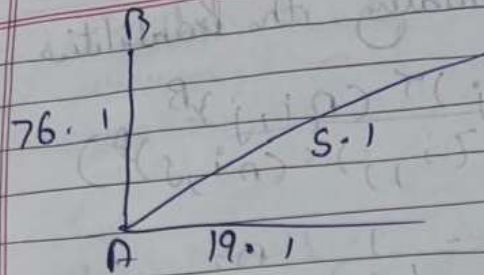 B
76.1
5.1
A 19.1